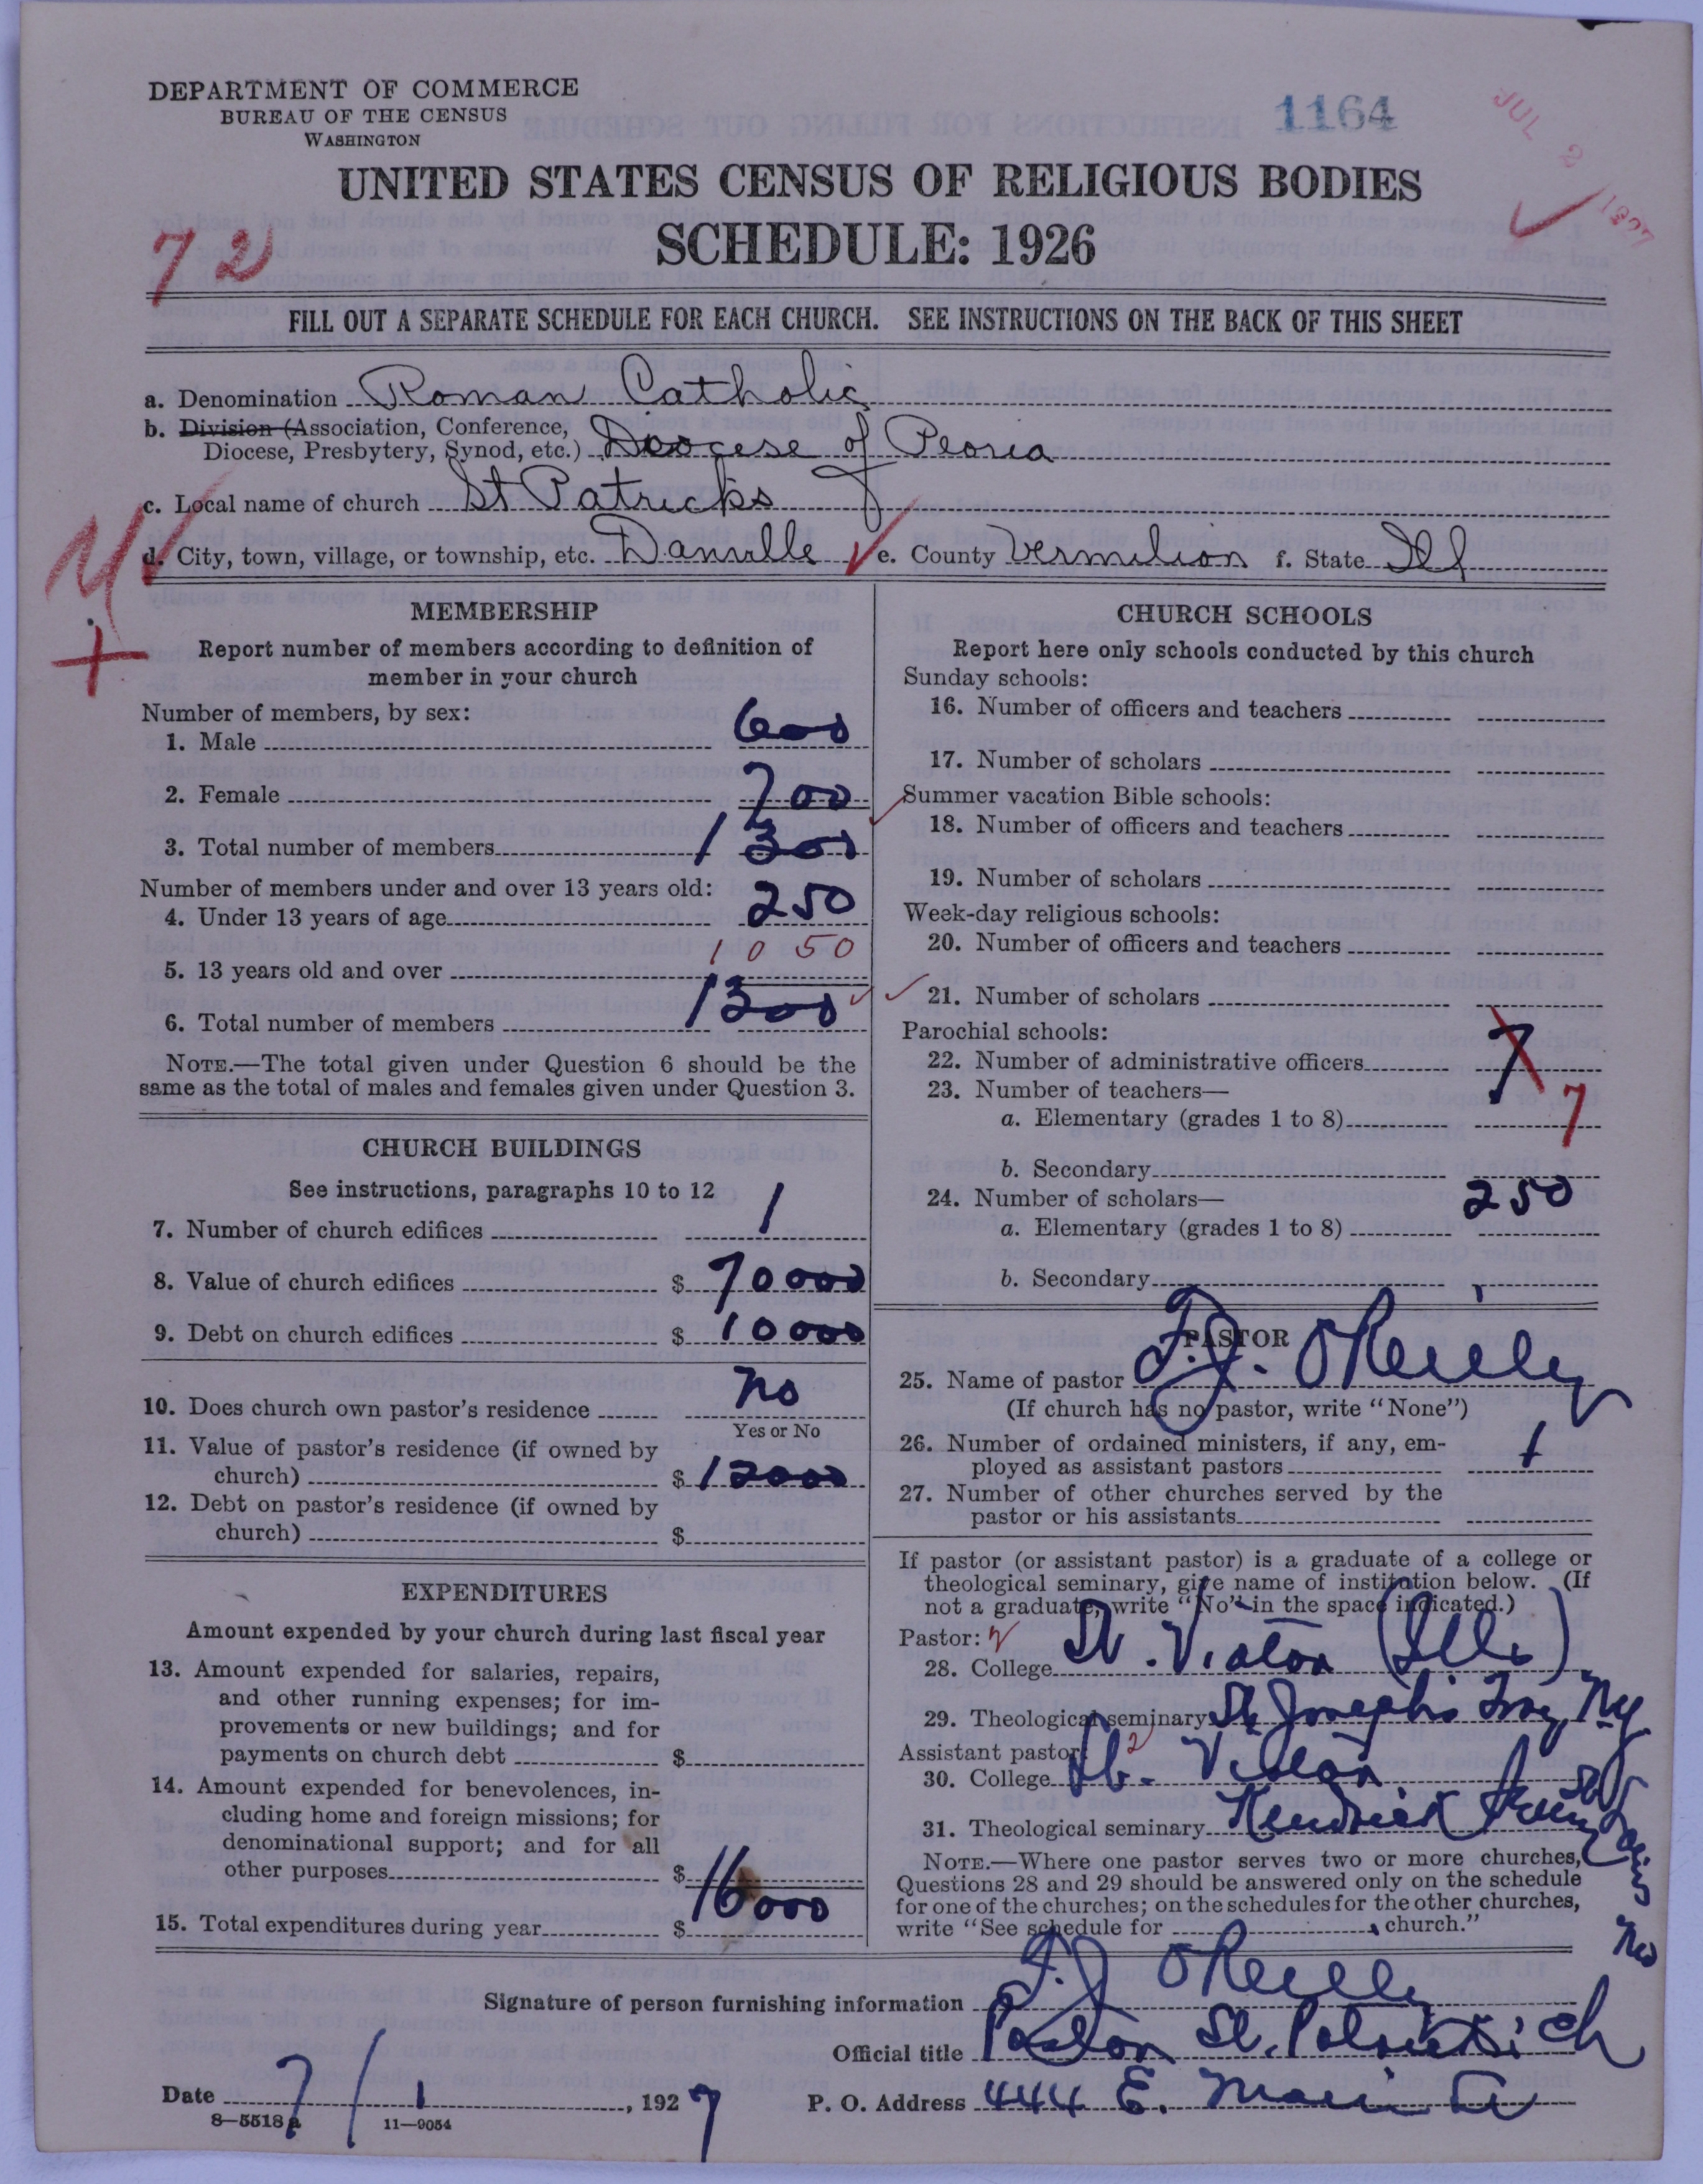 DEPARTMENT OF COMMERCE
BUREAU OF THE CENSUS
WASHINGTON
1164
JUL 2 1927
UNITED STATES CENSUS OF RELIGIOUS BODIES
SCHEDULE: 1926
72
FILL OUT A SEPARATE SCHEDULE FOR EACH CHURCH. SEE INSTRUCTIONS ON THE BACK OF THIS SHEET
a. Denomination Roman Catholic
b. Division (Association, Conference,
Diocese, Presbytery, Synod, etc.) Diocese of Peoria
c. Local name of church St Patricks
d. City, town, village, or township, etc. Danville e. County Vermilion f. State Ill
MEMBERSHIP
Report number of members according to definition of
member in your church
Number of members, by sex:
1. Male 600
2. Female 700
3. Total number of members 1300
Number of members under and over 13 years old:
4. Under 13 years of age 250
5. 13 years old and over 1050
6. Total number of members 1300
NOTE.—The total given under Question 6 should be the
same as the total of males and females given under Question 3.
CHURCH BUILDINGS
See instructions, paragraphs 10 to 12
7. Number of church edifices 1
8. Value of church edifices $ 70000
9. Debt on church edifices $ 10000
10. Does church own pastor's residence no
Yes or No
11. Value of pastor's residence (if owned by
church) $ 12000
12. Debt on pastor's residence (if owned by
church) $
EXPENDITURES
Amount expended by your church during last fiscal year
13. Amount expended for salaries, repairs,
and other running expenses; for im-
provements or new buildings; and for
payments on church debt $
14. Amount expended for benevolences, in-
cluding home and foreign missions; for
denominational support; and for all
other purposes $
15. Total expenditures during year $ 16000
CHURCH SCHOOLS
Report here only schools conducted by this church
Sunday schools:
16. Number of officers and teachers
17. Number of scholars
Summer vacation Bible schools:
18. Number of officers and teachers
19. Number of scholars
Week-day religious schools:
20. Number of officers and teachers
21. Number of scholars
Parochial schools:
22. Number of administrative officers 7
23. Number of teachers—
a. Elementary (grades 1 to 8) 7
b. Secondary
24. Number of scholars— 250
a. Elementary (grades 1 to 8)
b. Secondary
PASTOR
25. Name of pastor F.J. O'Reilly
(If church has no pastor, write "None")
26. Number of ordained ministers, if any, em-
ployed as assistant pastors 1
27. Number of other churches served by the
pastor or his assistants
If pastor (or assistant pastor) is a graduate of a college or
theological seminary, give name of institution below. (If
not a graduate, write "No" in the space indicated.)
Pastor: 2
28. College St. Viator (Ills)
29. Theological seminary St Josephs Troy Ny
Assistant pastor: 2
30. College St. Viator
31. Theological seminary Kendrick St Louis Mo
NOTE.—Where one pastor serves two or more churches,
Questions 28 and 29 should be answered only on the schedule
for one of the churches; on the schedules for the other churches,
write "See schedule for church."
Signature of person furnishing information F.J. O'Reilly
Official title Pastor St. Patricks ch
Date 7/1, 1927 P. O. Address 444 E. Main St
8—5518a 11—9054